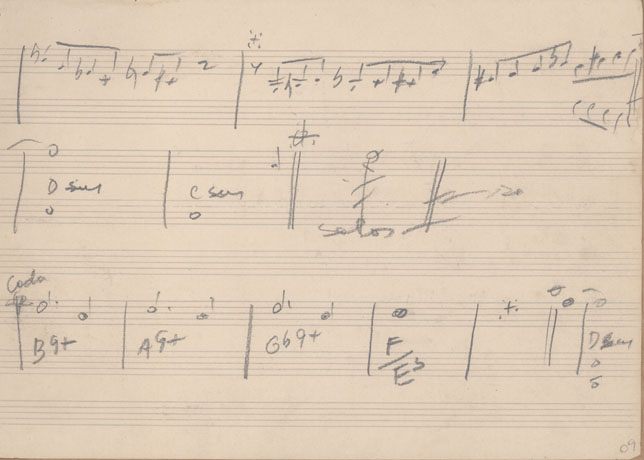 D sus C sus
solos
Coda
B9+ A9+ Gb9+ F/Eb D sus
09